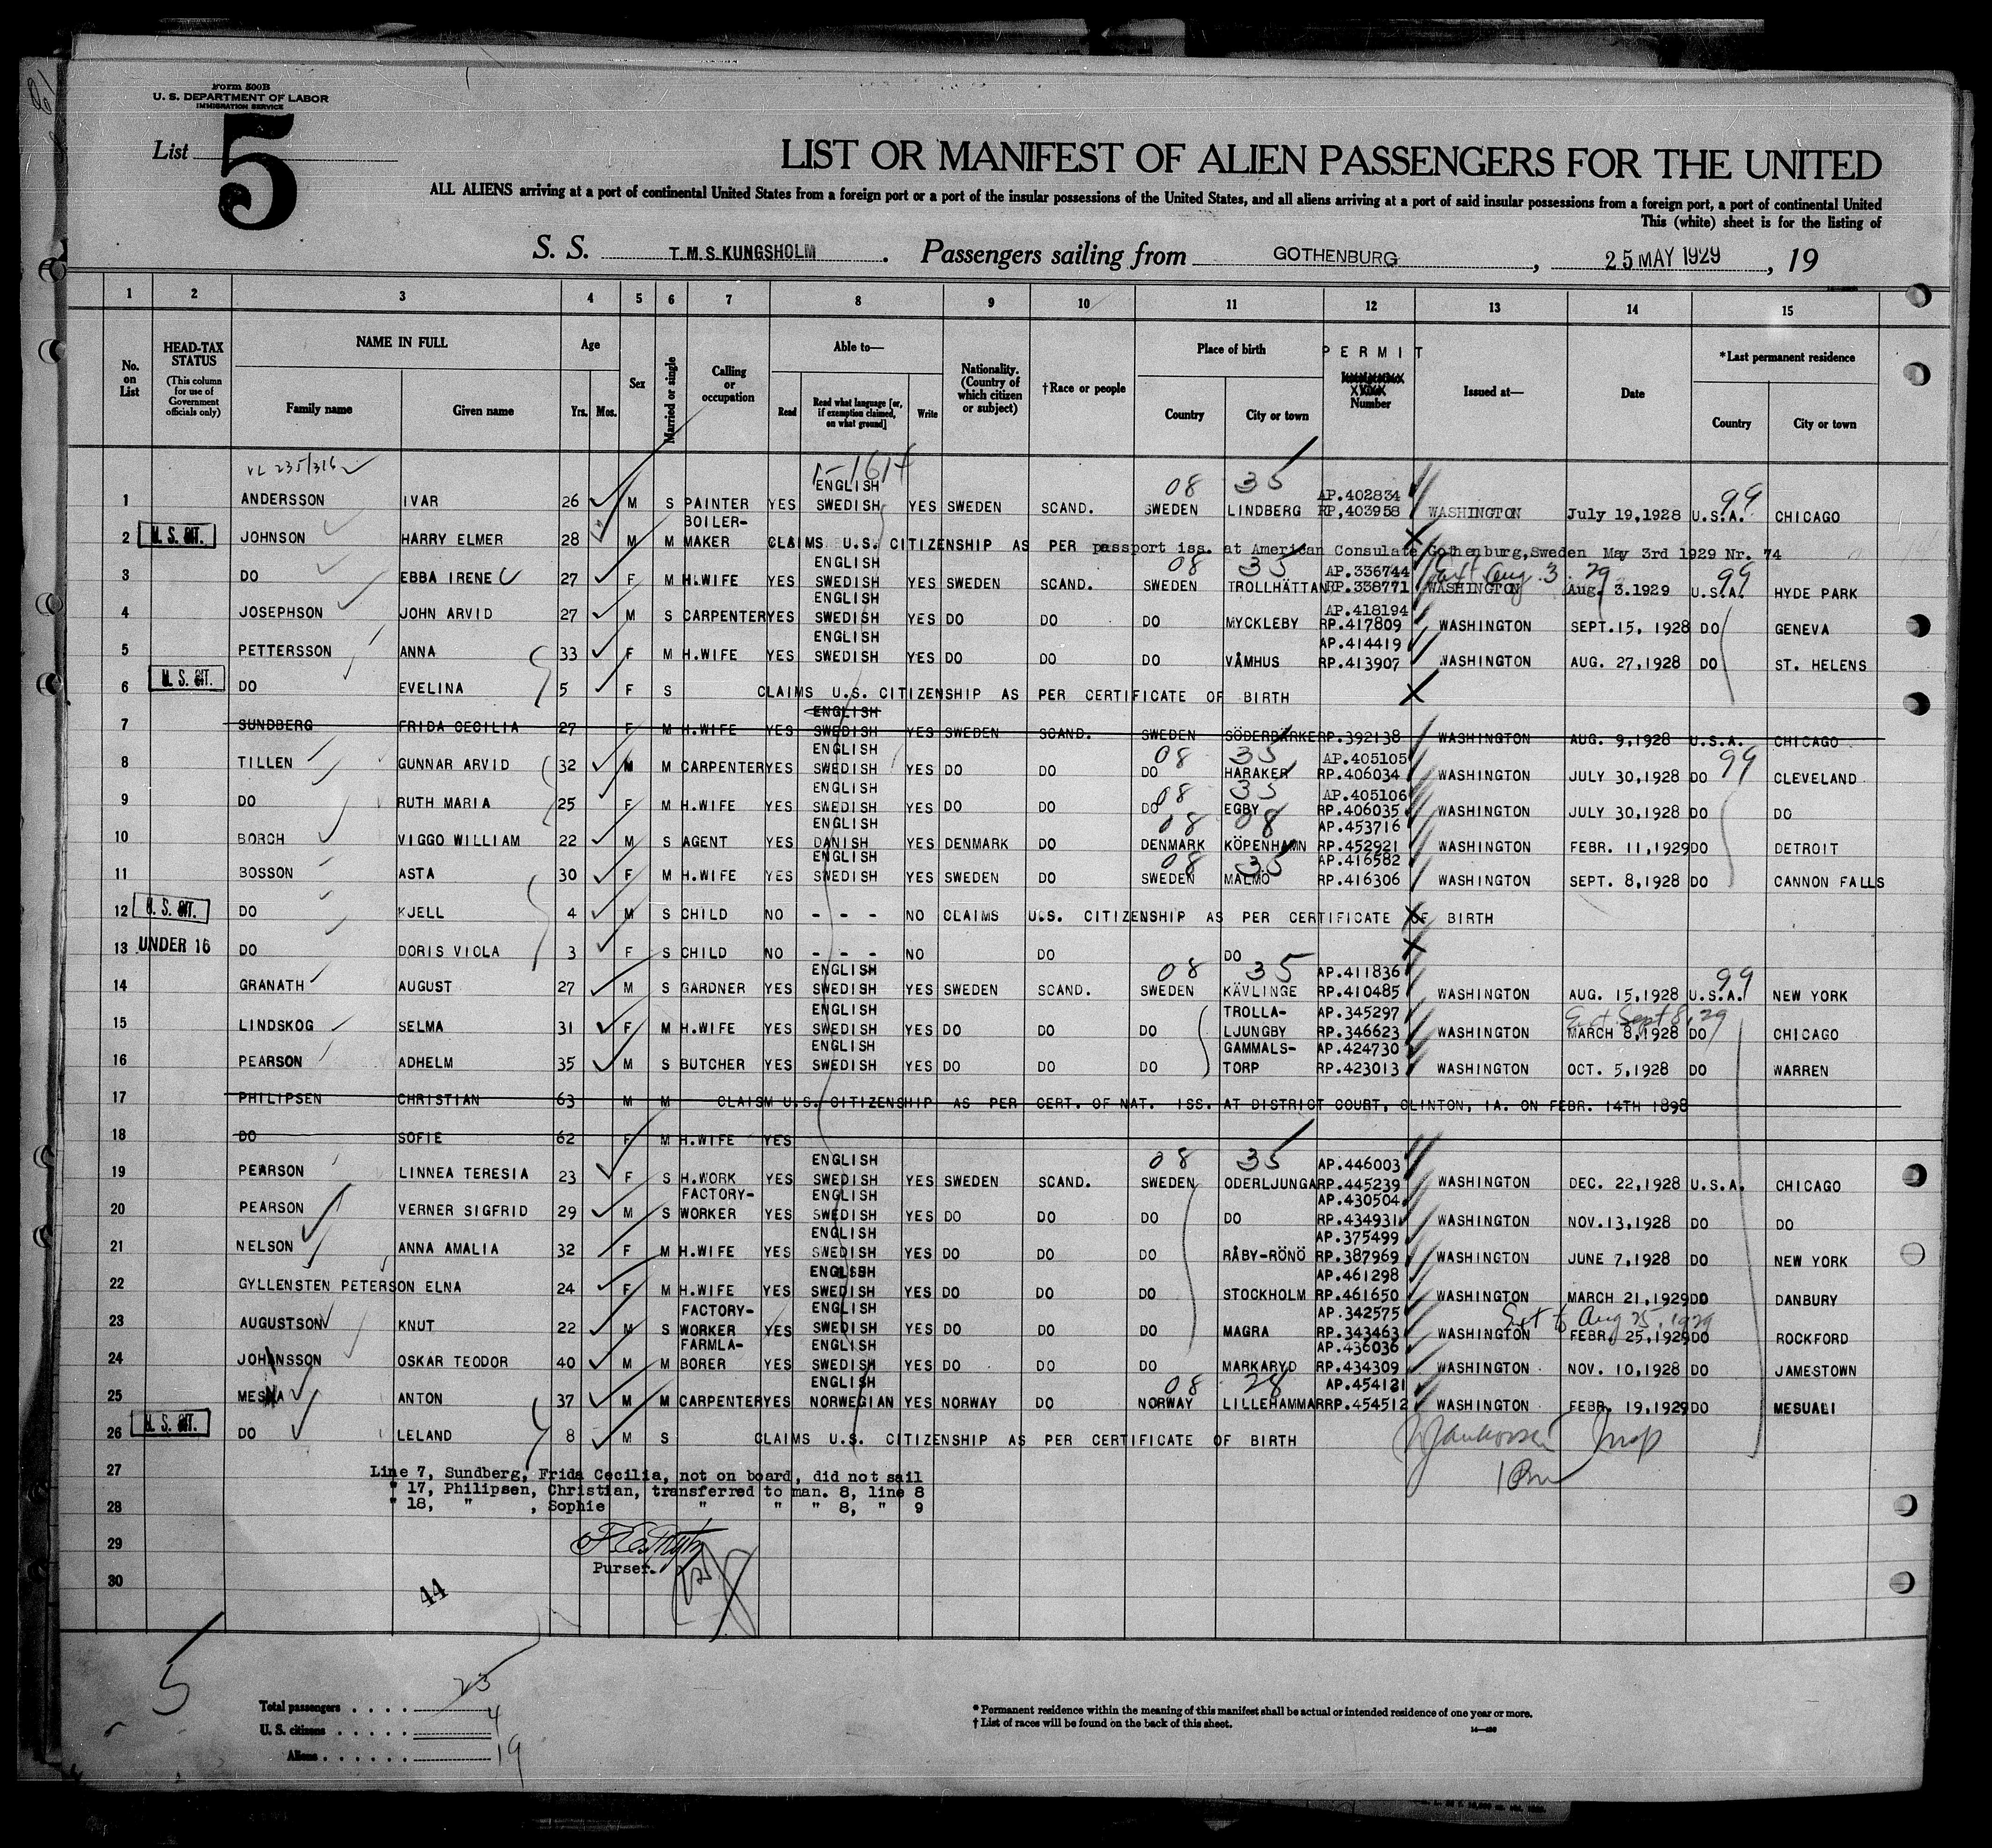 Form 500B
U. S. DEPARTMENT OF LABOR
IMMIGRATION SERVICE
List 5
LIST OR MANIFEST OF ALIEN PASSENGERS FOR THE UNITED
ALL ALIENS arriving at a port of continental United States from a foreign port or a port of the insular possessions of the United States, and all aliens arriving at a port of said insular possessions from a foreign port, a port of continental United
This (white) sheet is for the listing of
S. S. T.M.S. KUNGSHOLM . Passengers sailing from GOTHENBURG , 25 MAY 1929 , 19
1 2 3 4 5 6 7 8 9 10 11 12 13 14 15
No. on List
HEAD-TAX STATUS (This column for use of Government officials only)
NAME IN FULL
Family name Given name
Age Yrs. Mos.
Sex
Married or single
Calling or occupation
Able to—
Read Read what language [or, if exemption claimed, on what ground] Write
Nationality. (Country of which citizen or subject)
†Race or people
Place of birth
Country City or town
PERMIT
Number
Issued at—
Date
*Last permanent residence
Country City or town
1 ANDERSSON IVAR 26 M S PAINTER YES ENGLISH SWEDISH YES SWEDEN SCAND. 08 SWEDEN 35 LINDBERG AP.402834 RP.403958 WASHINGTON July 19,1928 U.S.A. 99 CHICAGO
2 U.S. CIT. JOHNSON HARRY ELMER 28 M M BOILER-MAKER CLAIMS U.S. CITIZENSHIP AS PER passport iss. at American Consulate Gothenburg,Sweden May 3rd 1929 Nr. 74
3 DO EBBA IRENE 27 F M H.WIFE YES ENGLISH SWEDISH YES SWEDEN SCAND. 08 SWEDEN 35 TROLLHÄTTAN AP.336744 RP.338771 WASHINGTON Ext Aug. 3. 29 Aug. 3.1929 U.S.A. 99 HYDE PARK
4 JOSEPHSON JOHN ARVID 27 M S CARPENTER YES ENGLISH SWEDISH YES DO DO DO MYCKLEBY AP.418194 RP.417809 WASHINGTON SEPT.15, 1928 DO GENEVA
5 PETTERSSON ANNA 33 F M H.WIFE YES ENGLISH SWEDISH YES DO DO DO VÅMHUS AP.414419 RP.413907 WASHINGTON AUG. 27,1928 DO ST. HELENS
6 U.S. CIT. DO EVELINA 5 F S CLAIMS U.S. CITIZENSHIP AS PER CERTIFICATE OF BIRTH
7 SUNDBERG FRIDA CECILIA 27 F M H.WIFE YES ENGLISH SWEDISH YES SWEDEN SCAND. SWEDEN SÖDERBÄRKE RP.392138 WASHINGTON AUG. 9,1928 U.S.A. CHICAGO
8 TILLEN GUNNAR ARVID 32 M M CARPENTER YES ENGLISH SWEDISH YES DO DO 08 DO 35 HARAKER AP.405105 RP.406034 WASHINGTON JULY 30,1928 DO 99 CLEVELAND
9 DO RUTH MARIA 25 F M H.WIFE YES ENGLISH SWEDISH YES DO DO 08 DO 35 EGBY AP.405106 RP.406035 WASHINGTON JULY 30,1928 DO DO
10 BORCH VIGGO WILLIAM 22 M S AGENT YES ENGLISH DANISH YES DENMARK DO 08 DENMARK 08 KÖPENHAMN AP.453716 RP.452921 WASHINGTON FEBR. 11,1929 DO DETROIT
11 BOSSON ASTA 30 F M H.WIFE YES ENGLISH SWEDISH YES SWEDEN DO 08 SWEDEN 35 MALMÖ AP.416582 RP.416306 WASHINGTON SEPT. 8,1928 DO CANNON FALLS
12 U.S. CIT. DO KJELL 4 M S CHILD NO - - - NO CLAIMS U.S. CITIZENSHIP AS PER CERTIFICATE OF BIRTH
13 UNDER 16 DO DORIS VIOLA 3 F S CHILD NO - - - NO DO DO
14 GRANATH AUGUST 27 M S GARDNER YES ENGLISH SWEDISH YES SWEDEN SCAND. 08 SWEDEN 35 KÄVLINGE AP.411836 RP.410485 WASHINGTON AUG. 15,1928 U.S.A. 99 NEW YORK
15 LINDSKOG SELMA 31 F M H.WIFE YES ENGLISH SWEDISH YES DO DO DO TROLLA-LJUNGBY AP.345297 RP.346623 WASHINGTON Ext Sept 8, 29 MARCH 8,1928 DO CHICAGO
16 PEARSON ADHELM 35 M S BUTCHER YES ENGLISH SWEDISH YES DO DO DO GAMMALS-TORP AP.424730 RP.423013 WASHINGTON OCT. 5,1928 DO WARREN
17 PHILIPSEN CHRISTIAN 63 M M CLAISM U.S. CITIZENSHIP AS PER CERT. OF NAT. ISS. AT DISTRICT COURT, CLINTON, IA. ON FEBR. 14TH 1898
18 DO SOFIE 62 F M H.WIFE YES
19 PEARSON LINNEA TERESIA 23 F S H.WORK YES ENGLISH SWEDISH YES SWEDEN SCAND. 08 SWEDEN 35 ODERLJUNGA AP.446003 RP.445239 WASHINGTON DEC. 22,1928 U.S.A. CHICAGO
20 PEARSON VERNER SIGFRID 29 M S FACTORY-WORKER YES ENGLISH SWEDISH YES DO DO DO DO AP.430504 RP.434931 WASHINGTON NOV.13,1928 DO DO
21 NELSON ANNA AMALIA 32 F M H.WIFE YES ENGLISH SWEDISH YES DO DO DO RÅBY-RÖNÖ AP.375499 RP.387969 WASHINGTON JUNE 7,1928 DO NEW YORK
22 GYLLENSTEN PETERSON ELNA 24 F M H.WIFE YES ENGLISH SWEDISH YES DO DO DO STOCKHOLM AP.461298 RP.461650 WASHINGTON MARCH 21,1929 DO DANBURY
23 AUGUSTSON KNUT 22 M S FACTORY-WORKER YES ENGLISH SWEDISH YES DO DO DO MAGRA AP.342575 RP.343463 WASHINGTON Ext to Aug 25, 1929 FEBR. 25,1929 DO ROCKFORD
24 JOHANSSON OSKAR TEODOR 40 M M FARMLA-BORER YES ENGLISH SWEDISH YES DO DO DO MARKARYD AP.436036 RP.434309 WASHINGTON NOV. 10,1928 DO JAMESTOWN
25 MESNA ANTON 37 M M CARPENTER YES ENGLISH NORWEGIAN YES NORWAY DO 08 NORWAY 28 LILLEHAMMAR AP.454121 RP.454512 WASHINGTON FEBR. 19,1929 DO MESUALI
26 U.S. CIT. DO LELAND 8 M S CLAIMS U.S. CITIZENSHIP AS PER CERTIFICATE OF BIRTH
27 Line 7, Sundberg, Frida Cecilia, not on board, did not sail
" 17, Philipsen, Christian, transferred to man. 8, line 8
28 " 18, " , Sophie " " " 8, " 9
29
Purser.
30
44
5
Total passengers . . . . 23
U. S. citizens . . . . . 4
Aliens . . . . . . 19
* Permanent residence within the meaning of this manifest shall be actual or intended residence of one year or more.
† List of races will be found on the back of this sheet.